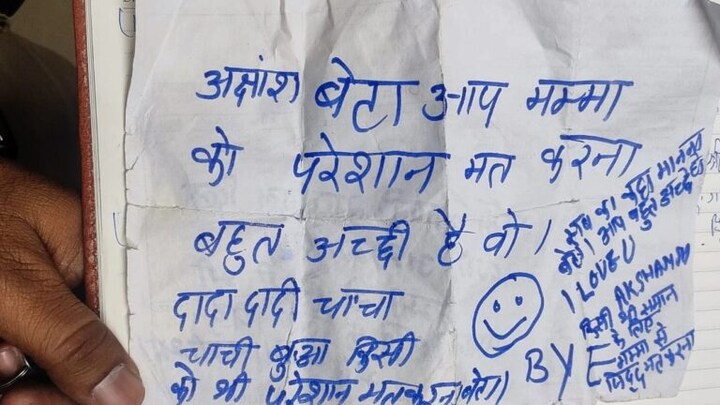 अक्षांश बेटा आप मम्मा
को परेशान मत करना
बहुत अच्छी है वो।
दादा दादी चाचा
चाची बुआ किसी
को भी परेशान मत करना बेटा।
सब का कहा मानना
बेटा। आप बहुत अच्छे हो
I LOVE U
AKSHANSH
किसी भी सामान
के लिए
मम्मा से
जिद्द मत करना
BYE